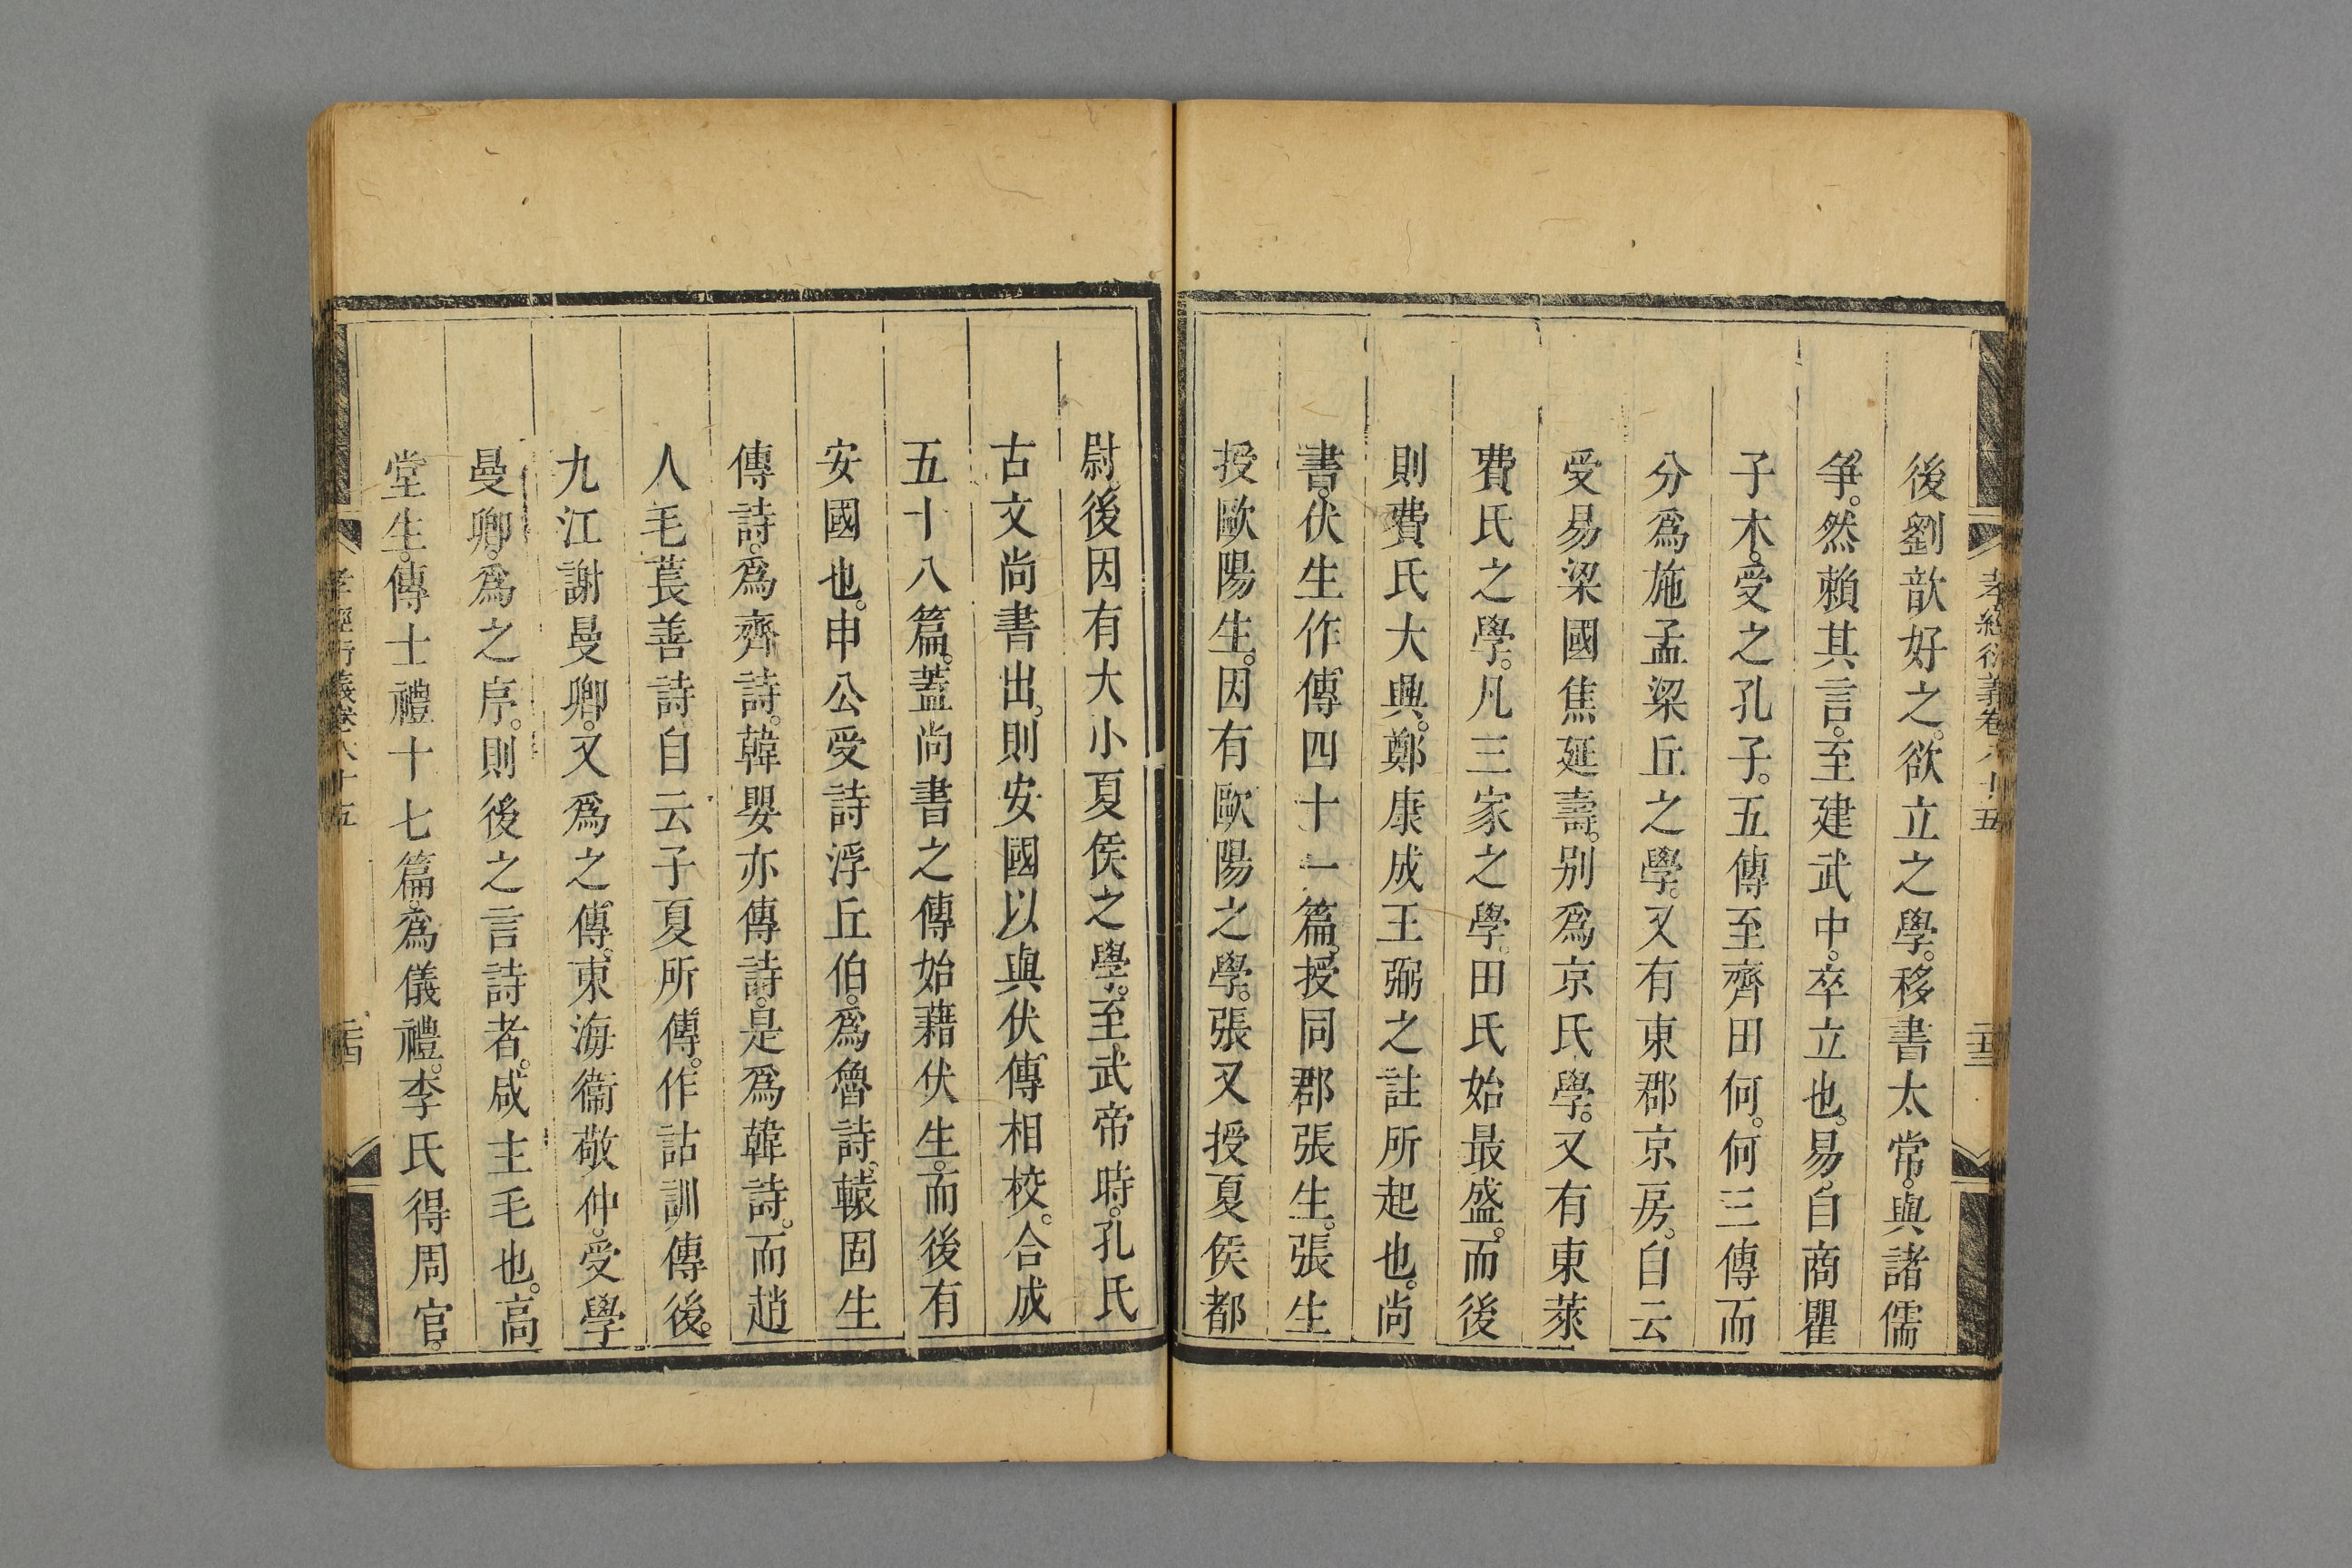 孝經衍義卷八十五
二十三
後劉歆好之。欲立之學。移書太常。與諸儒
爭。然賴其言。至建武中。卒立也。易。自商瞿
子木。受之孔子。五傳至齊田何。何三傳而
分爲施孟梁丘之學。又有東郡京房。自云
受易梁國焦延壽。别爲京氏學。又有東萊
費氏之學。凡三家之學。田氏始最盛。而後
則費氏大興。鄭康成王弼之註所起也。尚
書。伏生作傳四十一篇。授同郡張生。張生
授歐陽生。因有歐陽之學。張又授夏侯都
尉。後因有大小夏侯之學。至武帝時。孔氏
古文尚書出。則安國以與伏傳相校。合成
五十八篇。蓋尚書之傳始藉伏生。而後有
安國也。申公受詩浮丘伯。爲魯詩。轅固生
傳詩。爲齊詩。韓嬰亦傳詩。是爲韓詩。而趙
人毛萇善詩自云子夏所傳。作詁訓傳後。
九江謝曼卿。又爲之傳。東海衞敬仲。受學
曼卿。爲之序。則後之言詩者。咸主毛也。高
堂生。傳士禮十七篇。爲儀禮。李氏得周官。
孝經衍義卷八十五
二十四